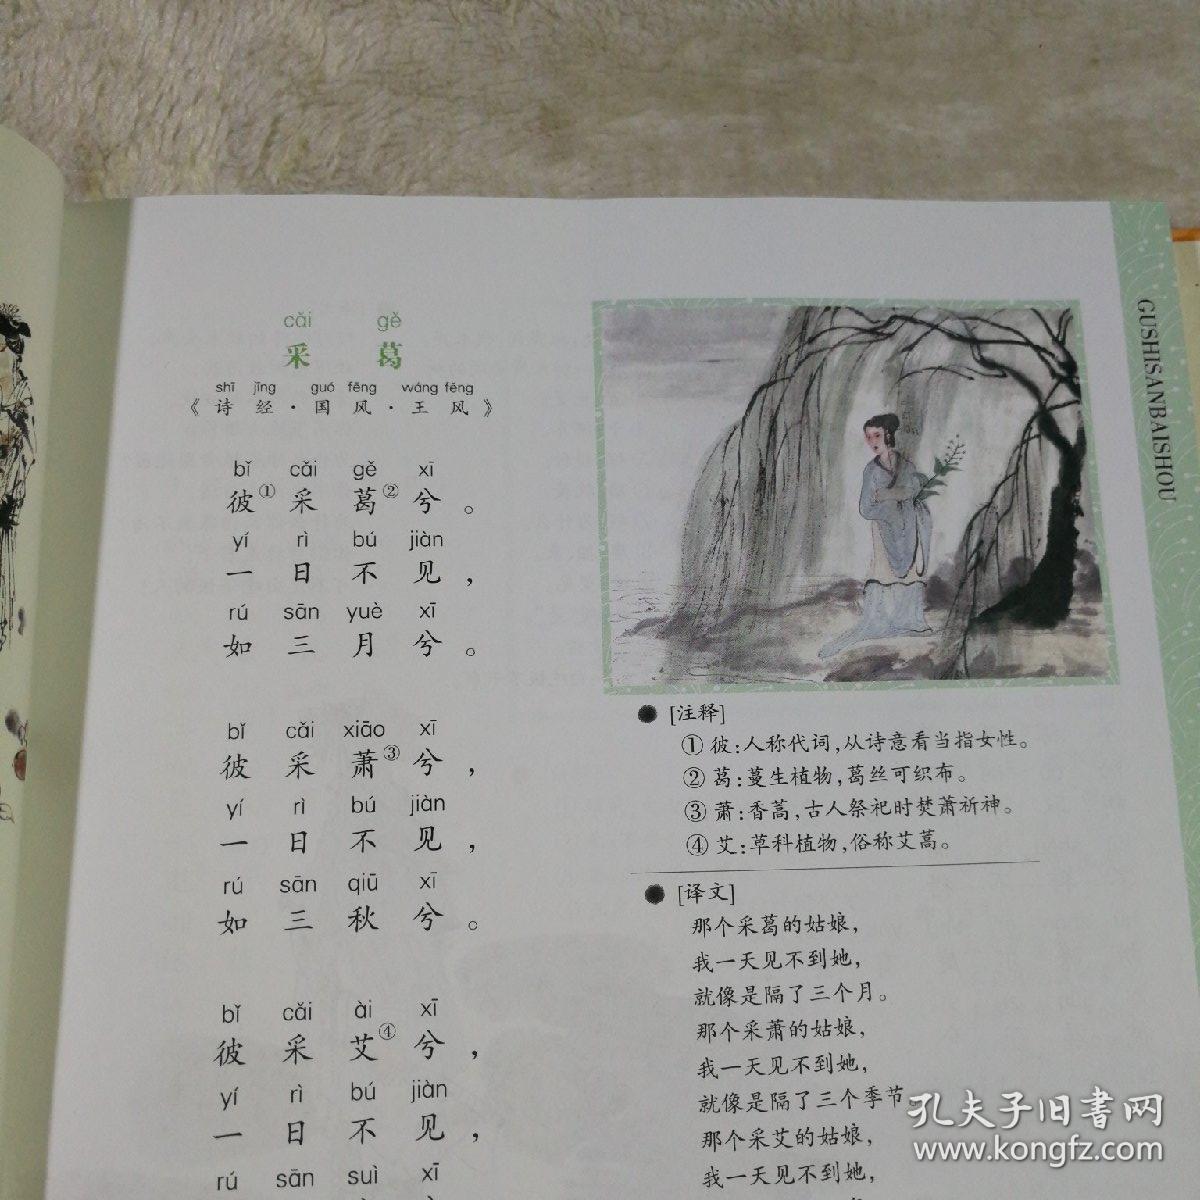 cǎi gě
采 葛
shī jīng guó fēng wáng fēng
《诗经·国风·王风》
bǐ cǎi gě xī
彼① 采 葛② 兮。
yí rì bú jiàn
一 日 不 见，
rú sān yuè xī
如 三 月 兮。
bǐ cǎi xiāo xī
彼 采 萧③ 兮，
yí rì bú jiàn
一 日 不 见，
rú sān qiū xī
如 三 秋 兮。
bǐ cǎi ài xī
彼 采 艾④ 兮，
yí rì bú jiàn
一 日 不 见，
rú sān suì xī
● [注释]
① 彼：人称代词，从诗意看当指女性。
② 葛：蔓生植物，葛丝可织布。
③ 萧：香蒿，古人祭祀时焚萧祈神。
④ 艾：草科植物，俗称艾蒿。
● [译文]
那个采葛的姑娘，
我一天见不到她，
就像是隔了三个月。
那个采萧的姑娘，
我一天见不到她，
就像是隔了三个季节。
那个采艾的姑娘，
我一天见不到她，
GUSHISANBAISHOU
孔夫子旧书网
www.kongfz.com